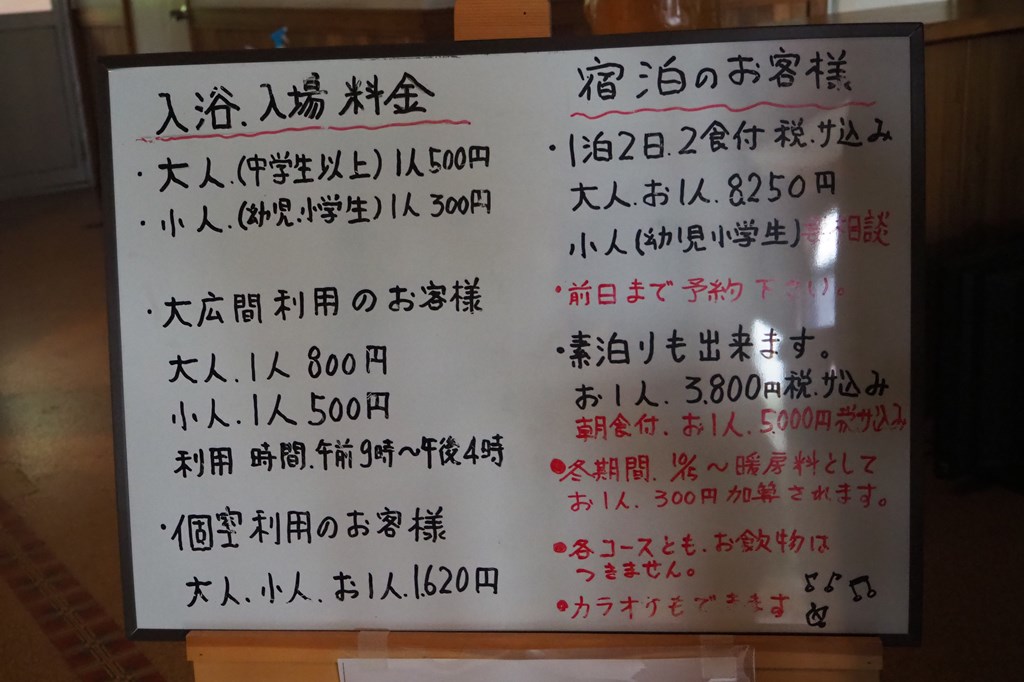 入浴.入場料金
・大人.(中学生以上)1人500円
・小人.(幼児.小学生)1人300円
・大広間利用のお客様
大人.1人800円
小人.1人500円
利用時間.午前9時〜午後4時
・個室利用のお客様
大人.小人.お1人.1.620円
宿泊のお客様
・1泊2日.2食付 税.サ込み
大人.お1人.8.250円
小人(幼児小学生)相談
・前日まで予約下さい。
・素泊りも出来ます。
お1人.3.800円税.サ込み
朝食付.お1人.5.000円税サ込み
●冬期間.10/15〜暖房料として
お1人.300円加算されます。
●各コースとも.お飲物は
つきません。
●カラオケもできます